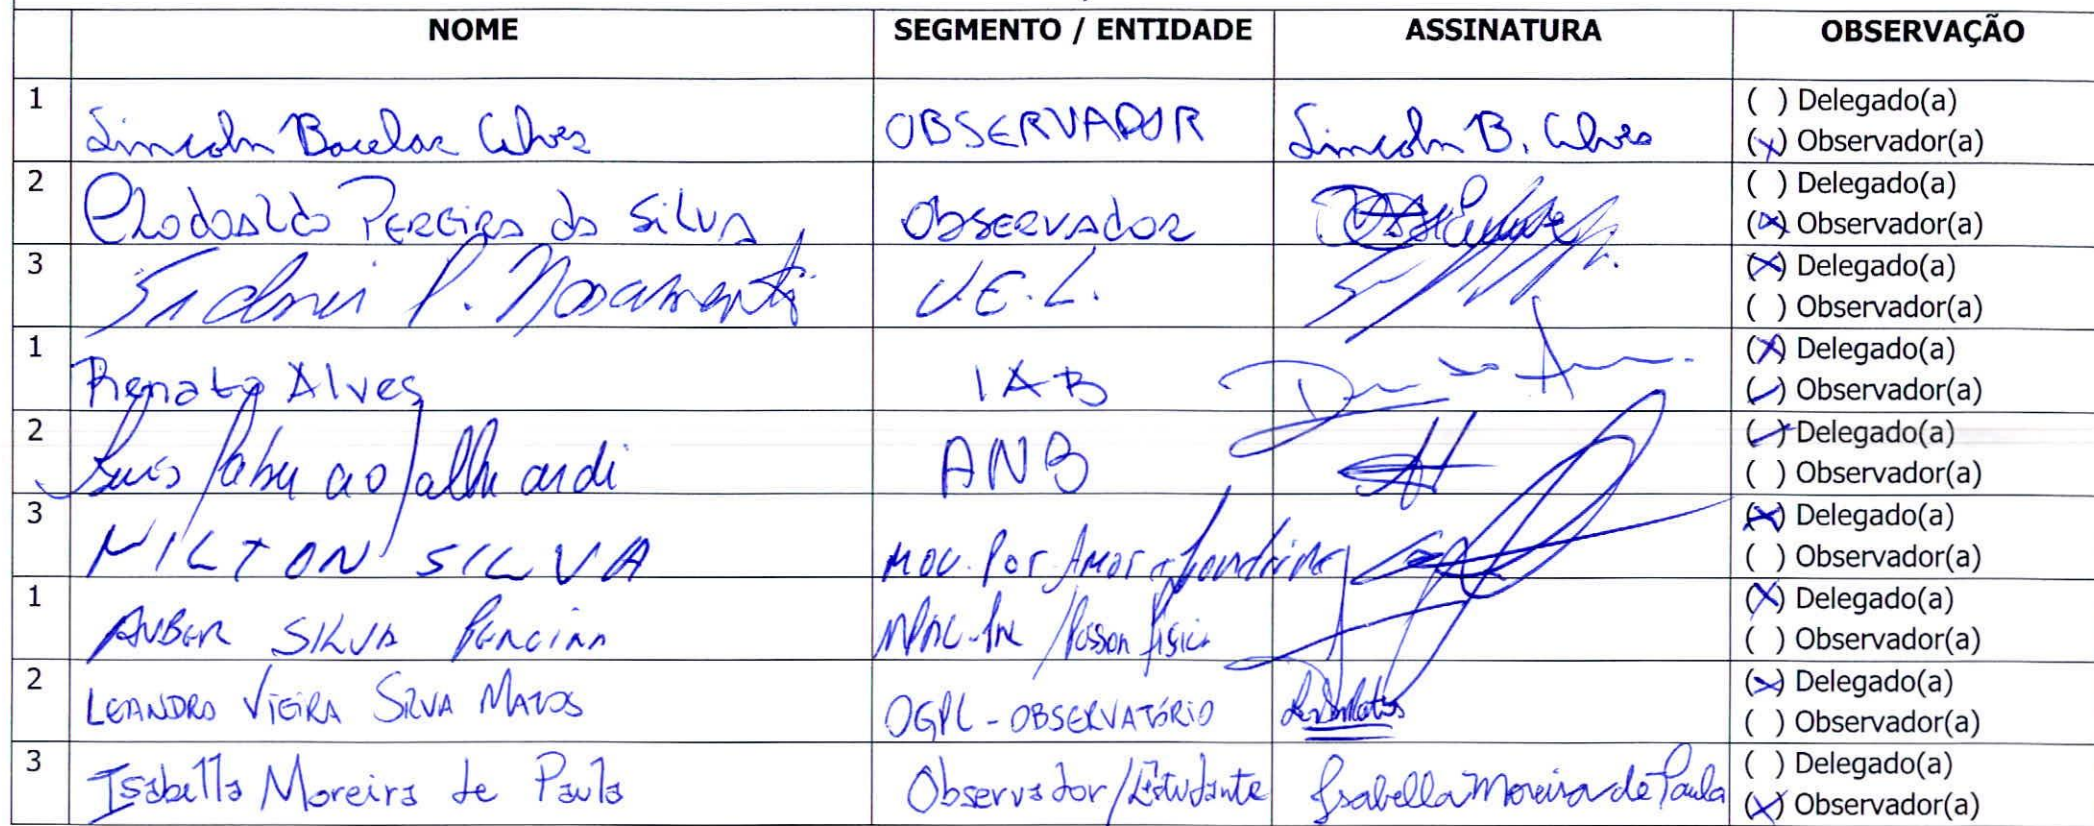 NOME SEGMENTO / ENTIDADE ASSINATURA OBSERVAÇÃO
1 Lincoln Bacelar Alves OBSERVADOR Lincoln B. Alves ( ) Delegado(a)
(x) Observador(a)
2 Clodoaldo PEREIRA da SILVA OBSERVADOR ( ) Delegado(a)
(x) Observador(a)
3 Sidnei P. Nascimento U.E.L. (x) Delegado(a)
( ) Observador(a)
1 Renato Alves IAB (x) Delegado(a)
( ) Observador(a)
2 Luis ANB ( ) Delegado(a)
( ) Observador(a)
3 NILTON SILVA MOV. Por Amor a Londrina (x) Delegado(a)
( ) Observador(a)
1 AUBER SILVA PEREIRA (x) Delegado(a)
( ) Observador(a)
2 LEANDRO VIEIRA SILVA MATOS OGPL - OBSERVATÓRIO (x) Delegado(a)
( ) Observador(a)
3 Isabella Moreira de Paula Observador/Estudante Isabella Moreira de Paula ( ) Delegado(a)
(x) Observador(a)